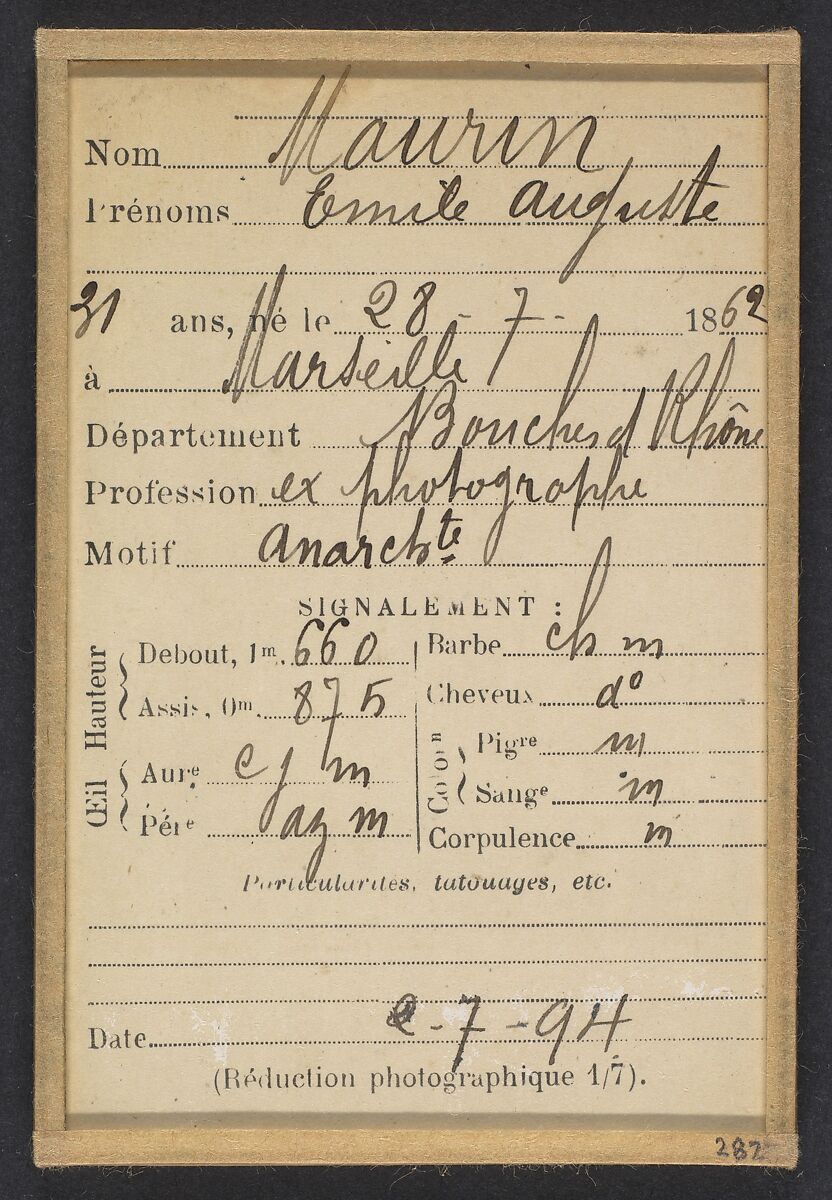 Nom Maurin
Prénoms Emile Auguste
31 ans, né le 28 - 7 - 1862
à Marseille
Département Bouches d Rhône
Profession ex photographe
Motif Anarchte
SIGNALEMENT :
Hauteur
Debout, 1m. 660
Assis, 0m. 875
Œil
Aure c j m
Péric az m
Barbe ch m
Cheveux do
Coloron
Pigre m
Sange m
Corpulence m
Particularités, tatouages, etc.
Date 2 - 7 - 94
(Réduction photographique 1/7).
282